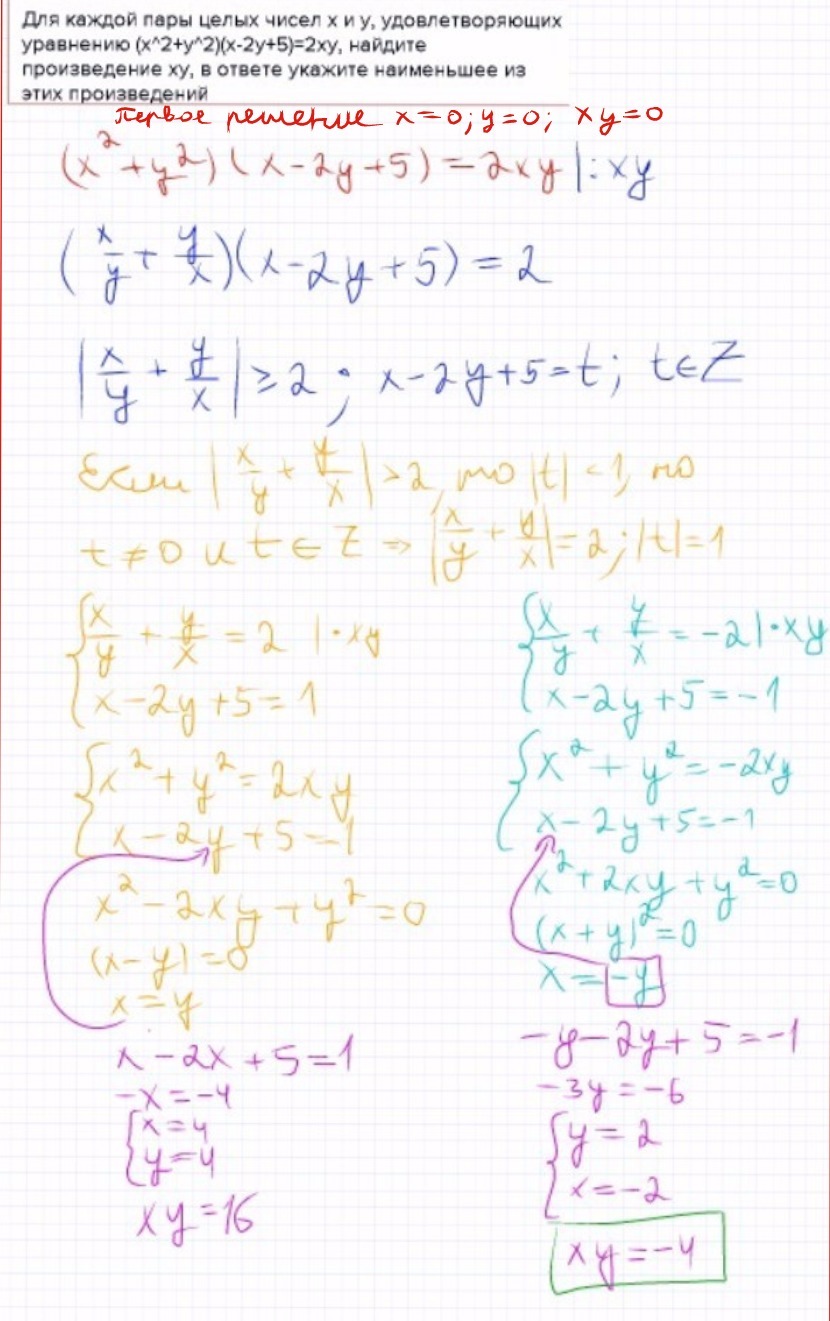 Для каждой пары целых чисел x и y, удовлетворяющих
уравнению (x^2+y^2)(x-2y+5)=2xy, найдите
произведение xy, в ответе укажите наименьшее из
этих произведений
первое решение x=0; y=0; xy=0
(x²+y²)(x-2y+5)=2xy |:xy
(x/y + y/x)(x-2y+5)=2
|x/y + y/x| ≥ 2; x-2y+5=t; t∈Z
Если |x/y + y/x| >2, то |t| <1, но
t≠0 и t∈Z => |x/y + y/x|=2; |t|=1
{x/y + y/x = 2 |·xy
x-2y+5=1
{x²+y²=2xy
x-2y+5=1
x²-2xy+y²=0
(x-y)=0
x=y
x-2x+5=1
-x=-4
{x=4
y=4
xy=16
{x/y + y/x = -2 |·xy
x-2y+5=-1
{x²+y²=-2xy
x-2y+5=-1
x²+2xy+y²=0
(x+y)²=0
x=-y
-y-2y+5=-1
-3y=-6
{y=2
x=-2
xy=-4